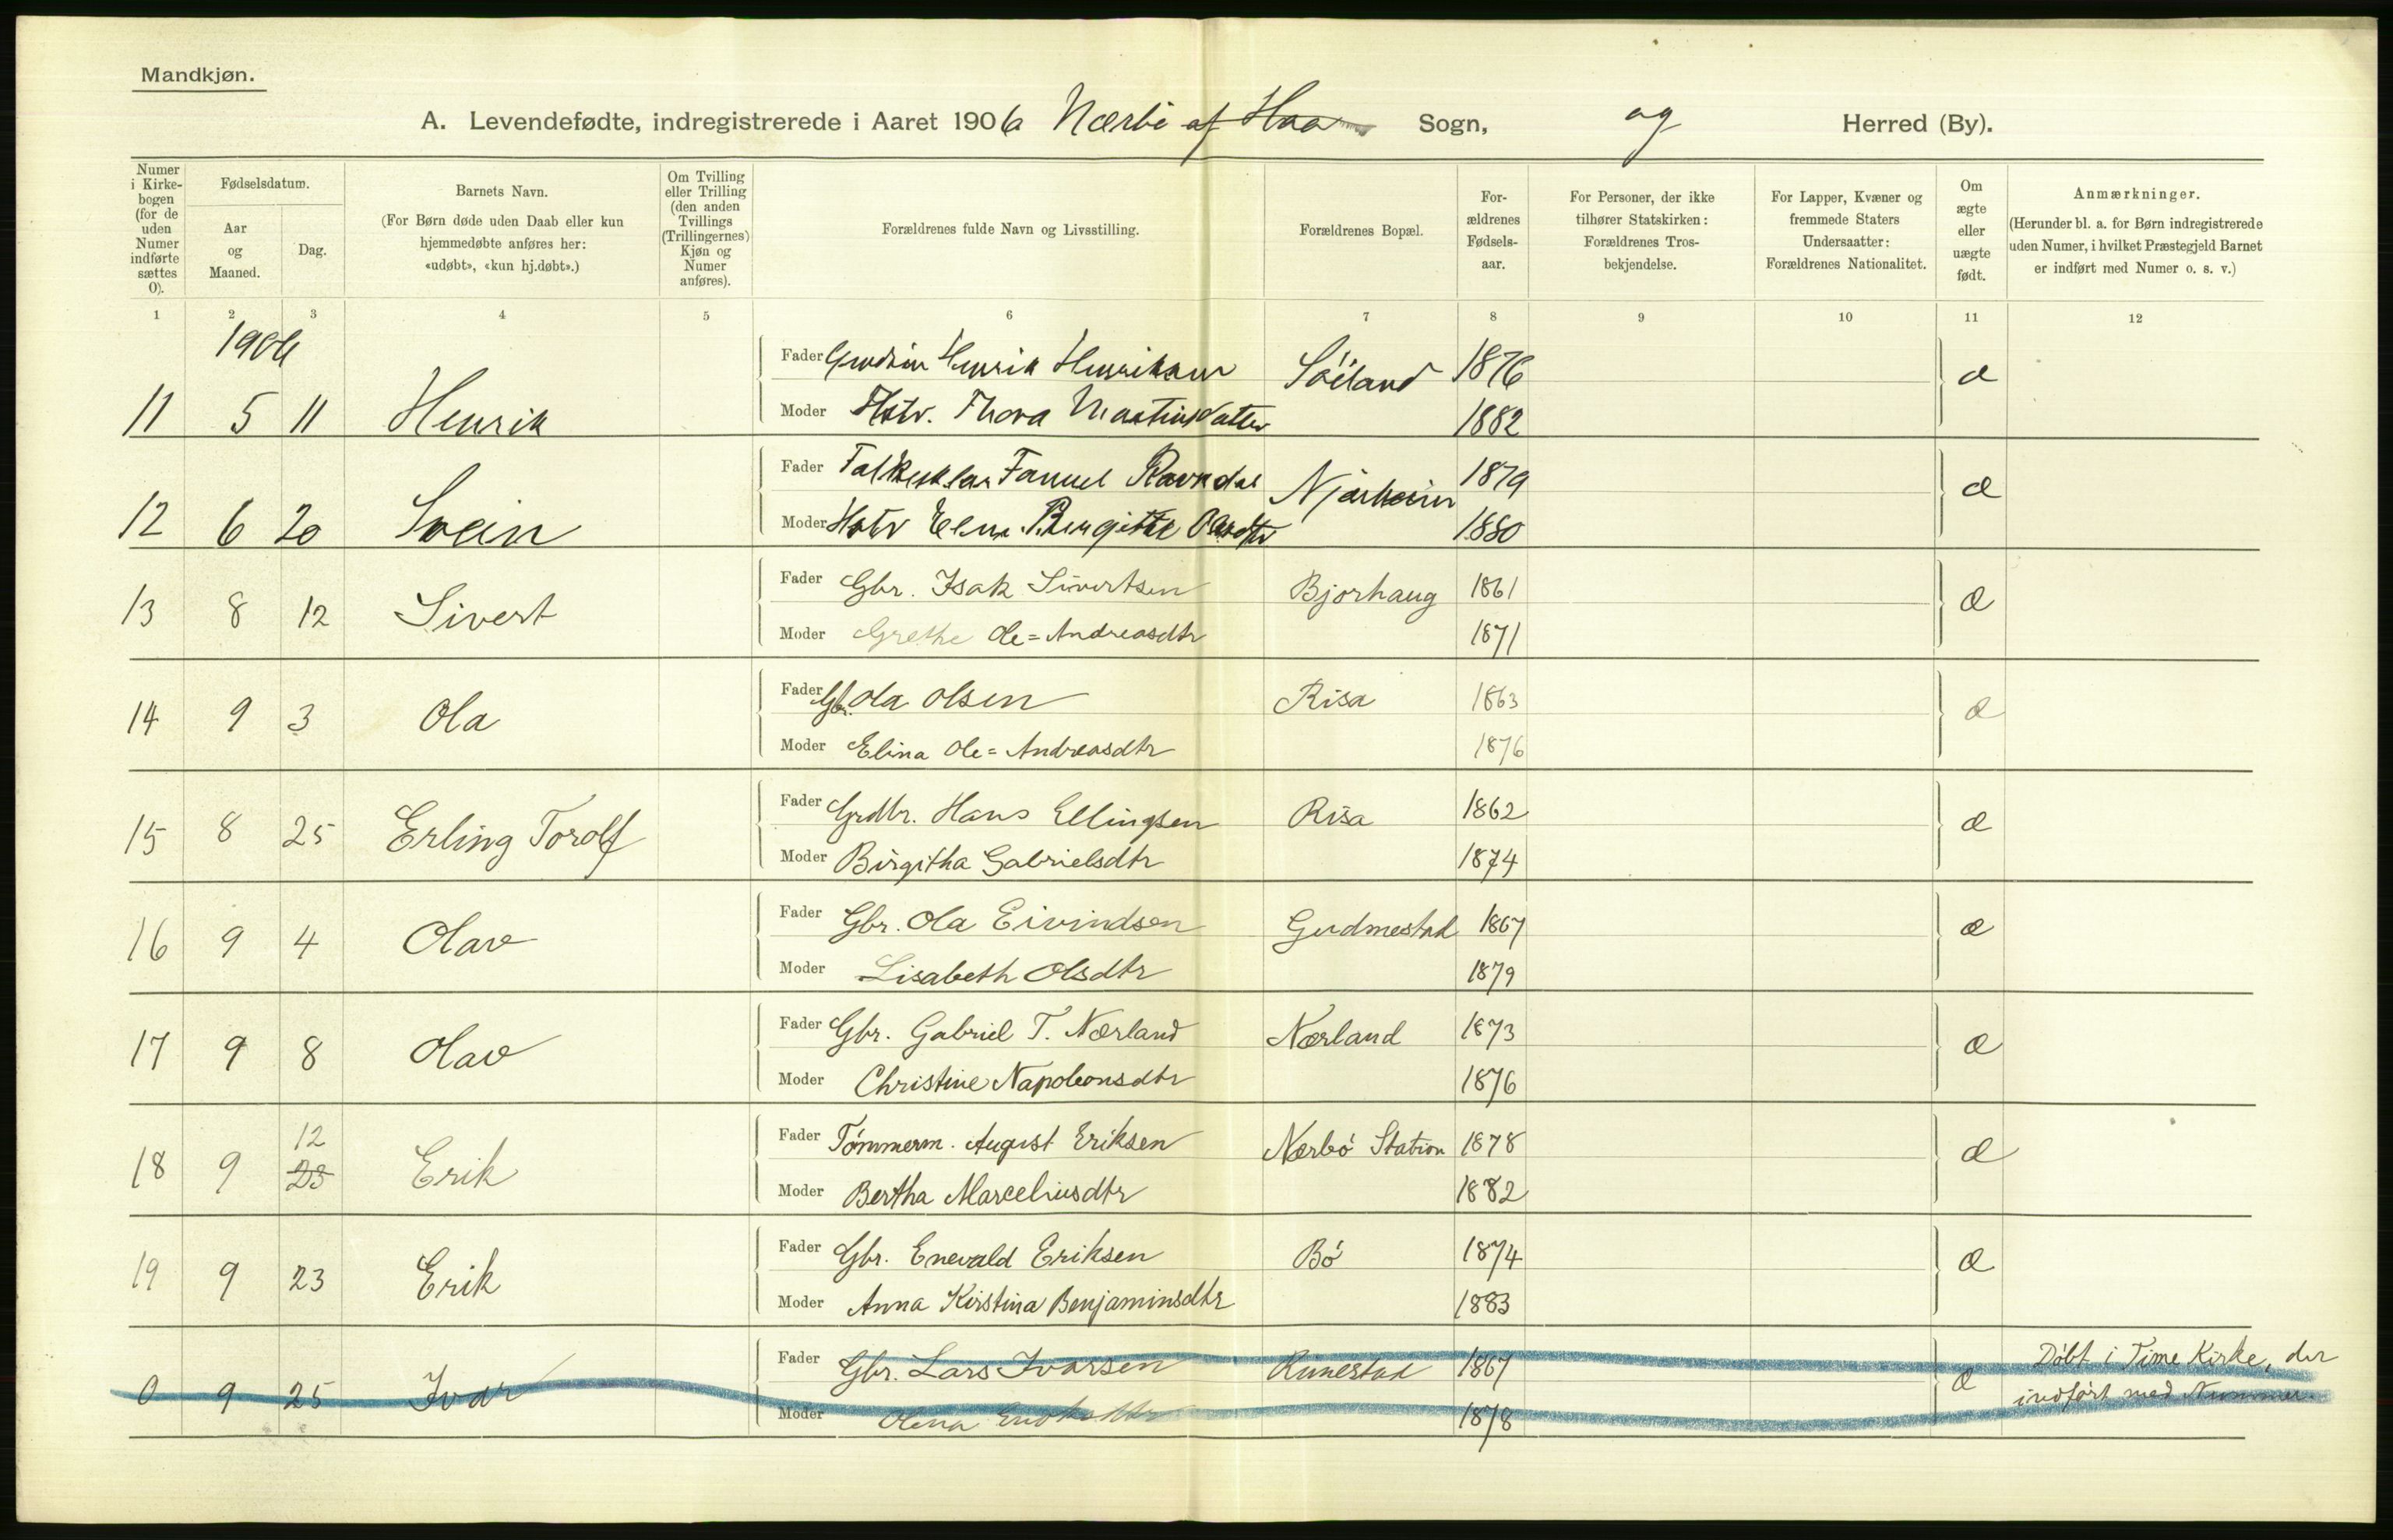 Mandkjøn.
A. Levendefødte, indregistrerede i Aaret 1906 Nærbø af Haa Sogn, og Herred (By).
Numer i Kirke-bogen (for de uden Numer indførte sættes 0).
Fødselsdatum.
Aar og Maaned.
Dag.
Barnets Navn.
(For Børn døde uden Daab eller kun hjemmedøbte anføres her: «udøbt», «kun hj.døbt».)
Om Tvilling eller Trilling (den anden Tvillings (Trillingernes) Kjøn og Numer anføres).
Forældrenes fulde Navn og Livsstilling.
Forældrenes Bopæl.
For-ældrenes Fødsels-aar.
For Personer, der ikke tilhører Statskirken: Forældrenes Tros-bekjendelse.
For Lapper, Kvæner og fremmede Staters Undersaatter: Forældrenes Nationalitet.
Om ægte eller uægte født.
Anmærkninger.
(Herunder bl. a. for Børn indregistrerede uden Numer, i hvilket Præstegjeld Barnet er indført med Numer o. s. v.)
1 2 3 4 5 6 7 8 9 10 11 12
1906
Fader Henrik Henriksen Söiland 1876 æ
11 5 11 Henrik Moder Hstr. Thora Martinsdatter 1882
Fader Ravndal Njærheim 1879 æ
12 6 20 Svein Moder Hstr 1880
Fader Gbr. Isak Sivertsen Bjorhaug 1861
13 8 12 Sivert æ
Moder Grethe Ole=Andreasdtr 1871
Fader Gbr. Ola Olsen Risa 1863
14 9 3 Ola æ
Moder Elina Ole=Andreasdtr 1876
Fader Grdbr. Hans Ellingsen Risa 1862
15 8 25 Erling Torolf æ
Moder Birgitha Gabrielsdtr 1874
Fader Gbr. Ola Eivindsen Gudmestad 1867
16 9 4 Olav æ
Moder Lisabeth Olsdtr 1879
Fader Gbr. Gabriel T. Nærland Nærland 1873
17 9 8 Olav æ
Moder Christine Napoleonsdtr 1876
12
Fader Tömmerm. August Eriksen Nærbö Station 1878
18 9 23 Erik æ
Moder Bertha Marceliusdtr 1882
Fader Gbr. Enevald Eriksen Bö 1874
19 9 23 Erik æ
Moder Anna Kirstina Benjaminsdtr 1883
Fader Gbr. Lars Ivarsen Rimestad 1867 Döbt i Time Kirke, der
0 9 25 Ivar æ indfört med Nummer.
Moder Olena 1878